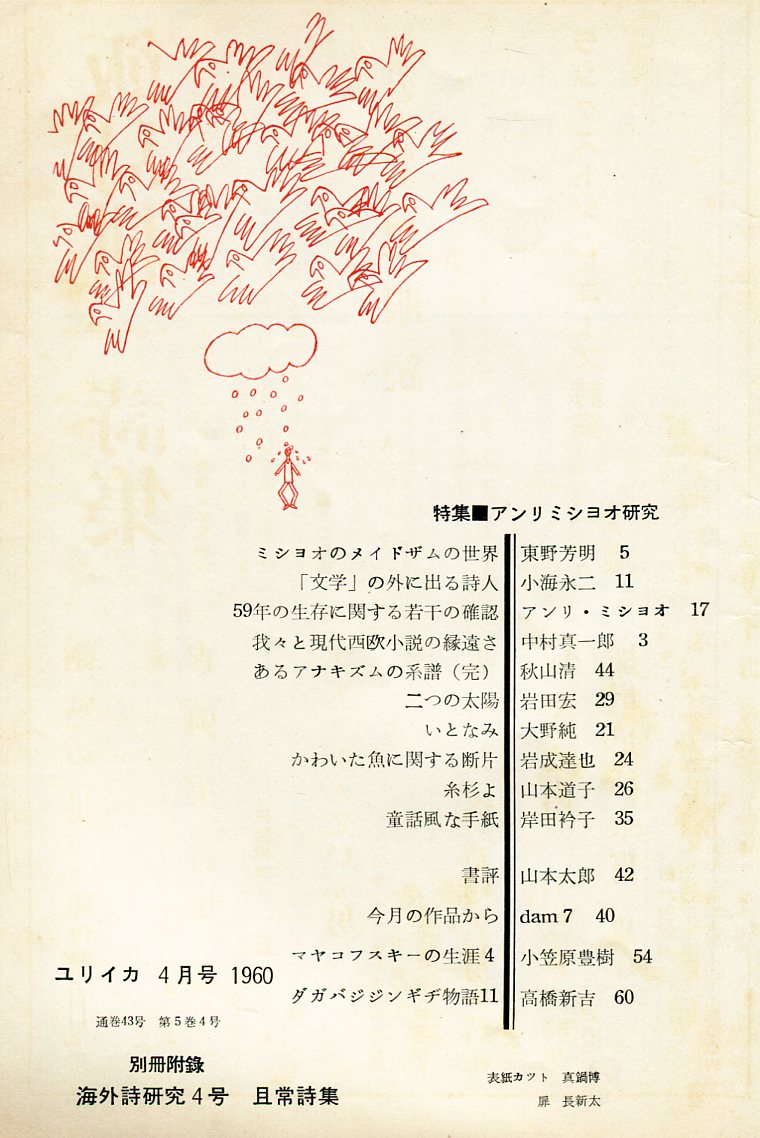 特集■アンリミシヨオ研究
ミシヨオのメイドザムの世界 東野芳明 5
「文学」の外に出る詩人 小海永二 11
59年の生存に関する若干の確認 アンリ・ミシヨオ 17
我々と現代西欧小説の縁遠さ 中村真一郎 3
あるアナキズムの系譜(完) 秋山清 44
二つの太陽 岩田宏 29
いとなみ 大野純 21
かわいた魚に関する断片 岩成達也 24
糸杉よ 山本道子 26
童話風な手紙 岸田衿子 35
書評 山本太郎 42
今月の作品から dam 7 40
マヤコフスキーの生涯4 小笠原豊樹 54
ダガバジジンギヂ物語11 高橋新吉 60
ユリイカ 4月号 1960
通巻43号 第5巻4号
別冊附錄
海外詩研究4号 且常詩集
表紙カツト 真鍋博
扉 長新太